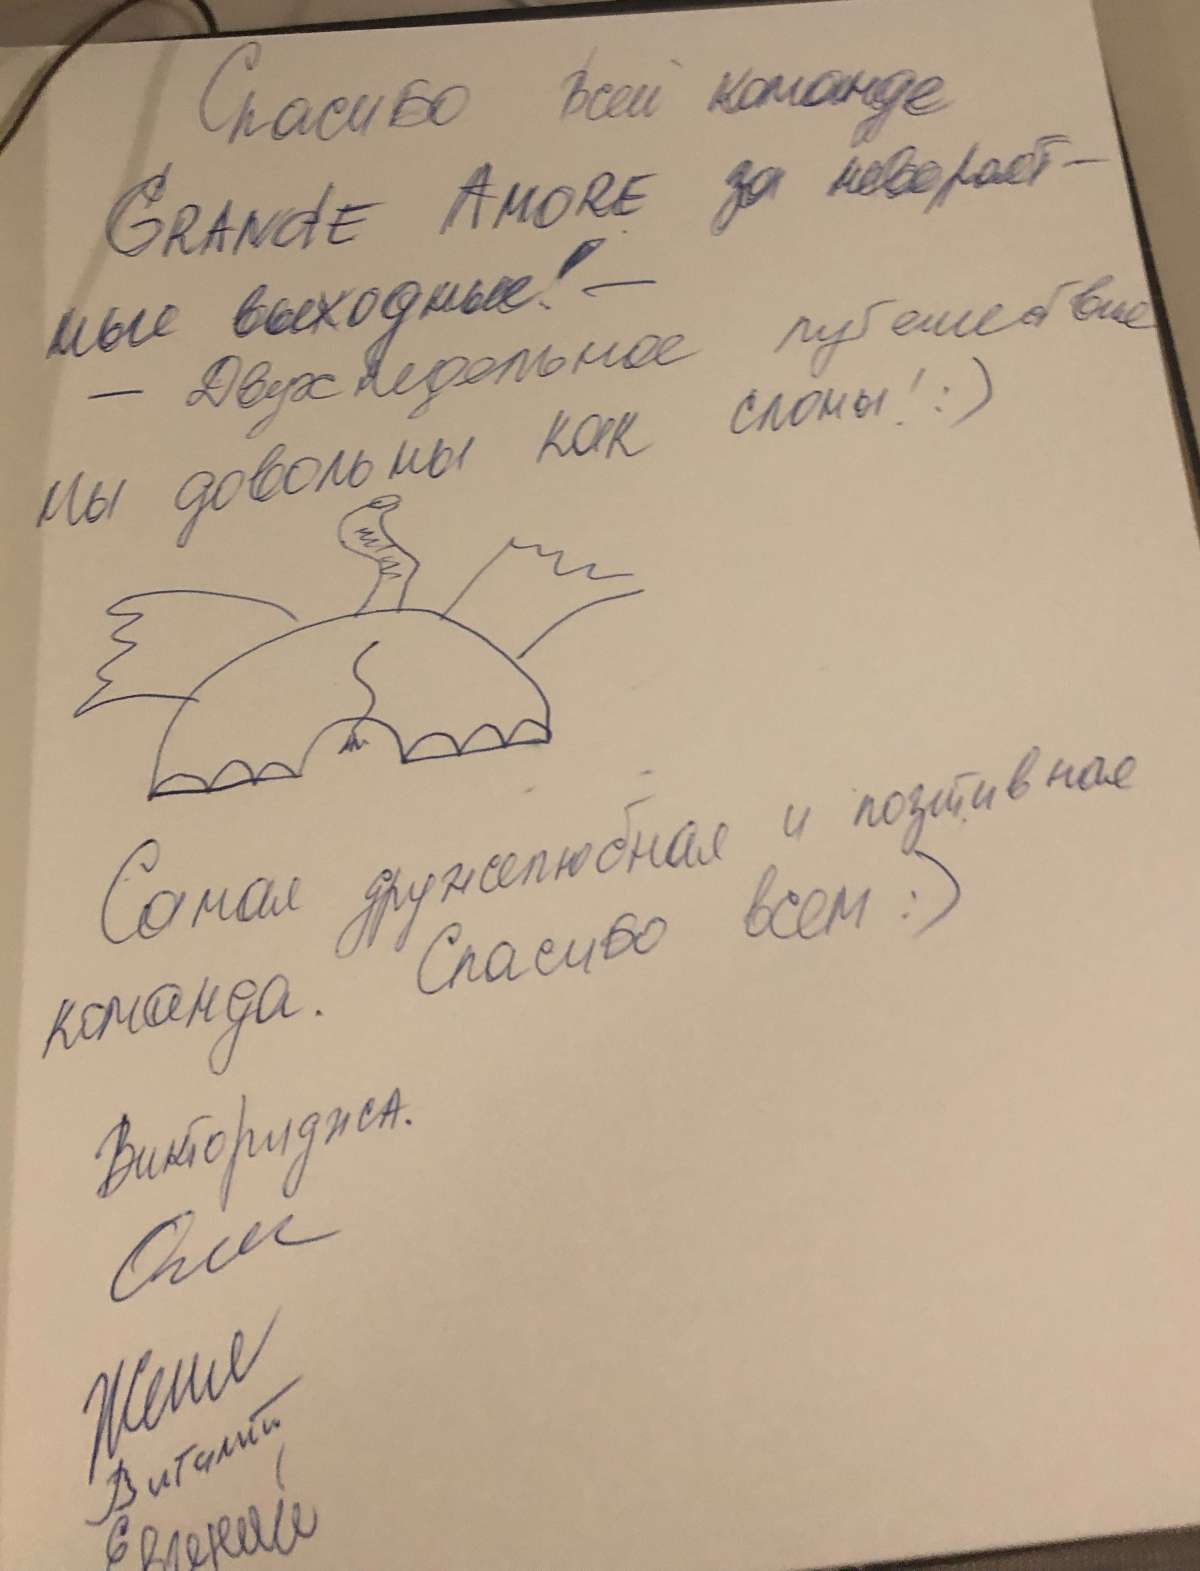 Спасибо всей команде
GRANDE AMORE за невероят-
ные выходные! —
— Двухнедельное путешествие
Мы довольны как слоны! :)
Самая дружелюбная и позтивная
команда. Спасибо всем :)
Викториджа.
Женя
Виталий
Евгений